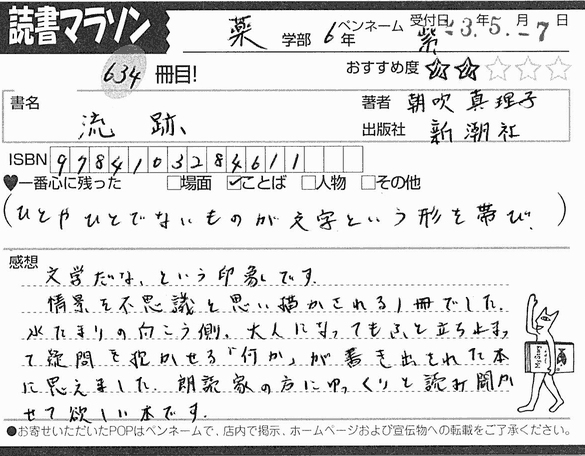 読書マラソン
薬 学部 6年 ペンネーム 紫 受付日 -3.年5.月-7日
634 冊目! おすすめ度 ★★☆☆☆
書名 流跡、
著者 朝吹 真理子
出版社 新潮社
ISBN 9784103284611
♥一番心に残った □場面 ☑ことば □人物 □その他
(ひとやひとでないものが文字という形を帯び、)
感想
文学だな、という印象です。
情景を不思議と思い描かされる1冊でした。
水たまりの向こう側、大人になってもふと立ち止まっ
て疑問を抱かせる「何か」が書き出された本
に思えました。朗読家の方にゆっくりと読み聞か
せて欲しい本です。
●お寄せいただいたPOPはペンネームで、店内で掲示、ホームページおよび宣伝物への転載をご了承ください。